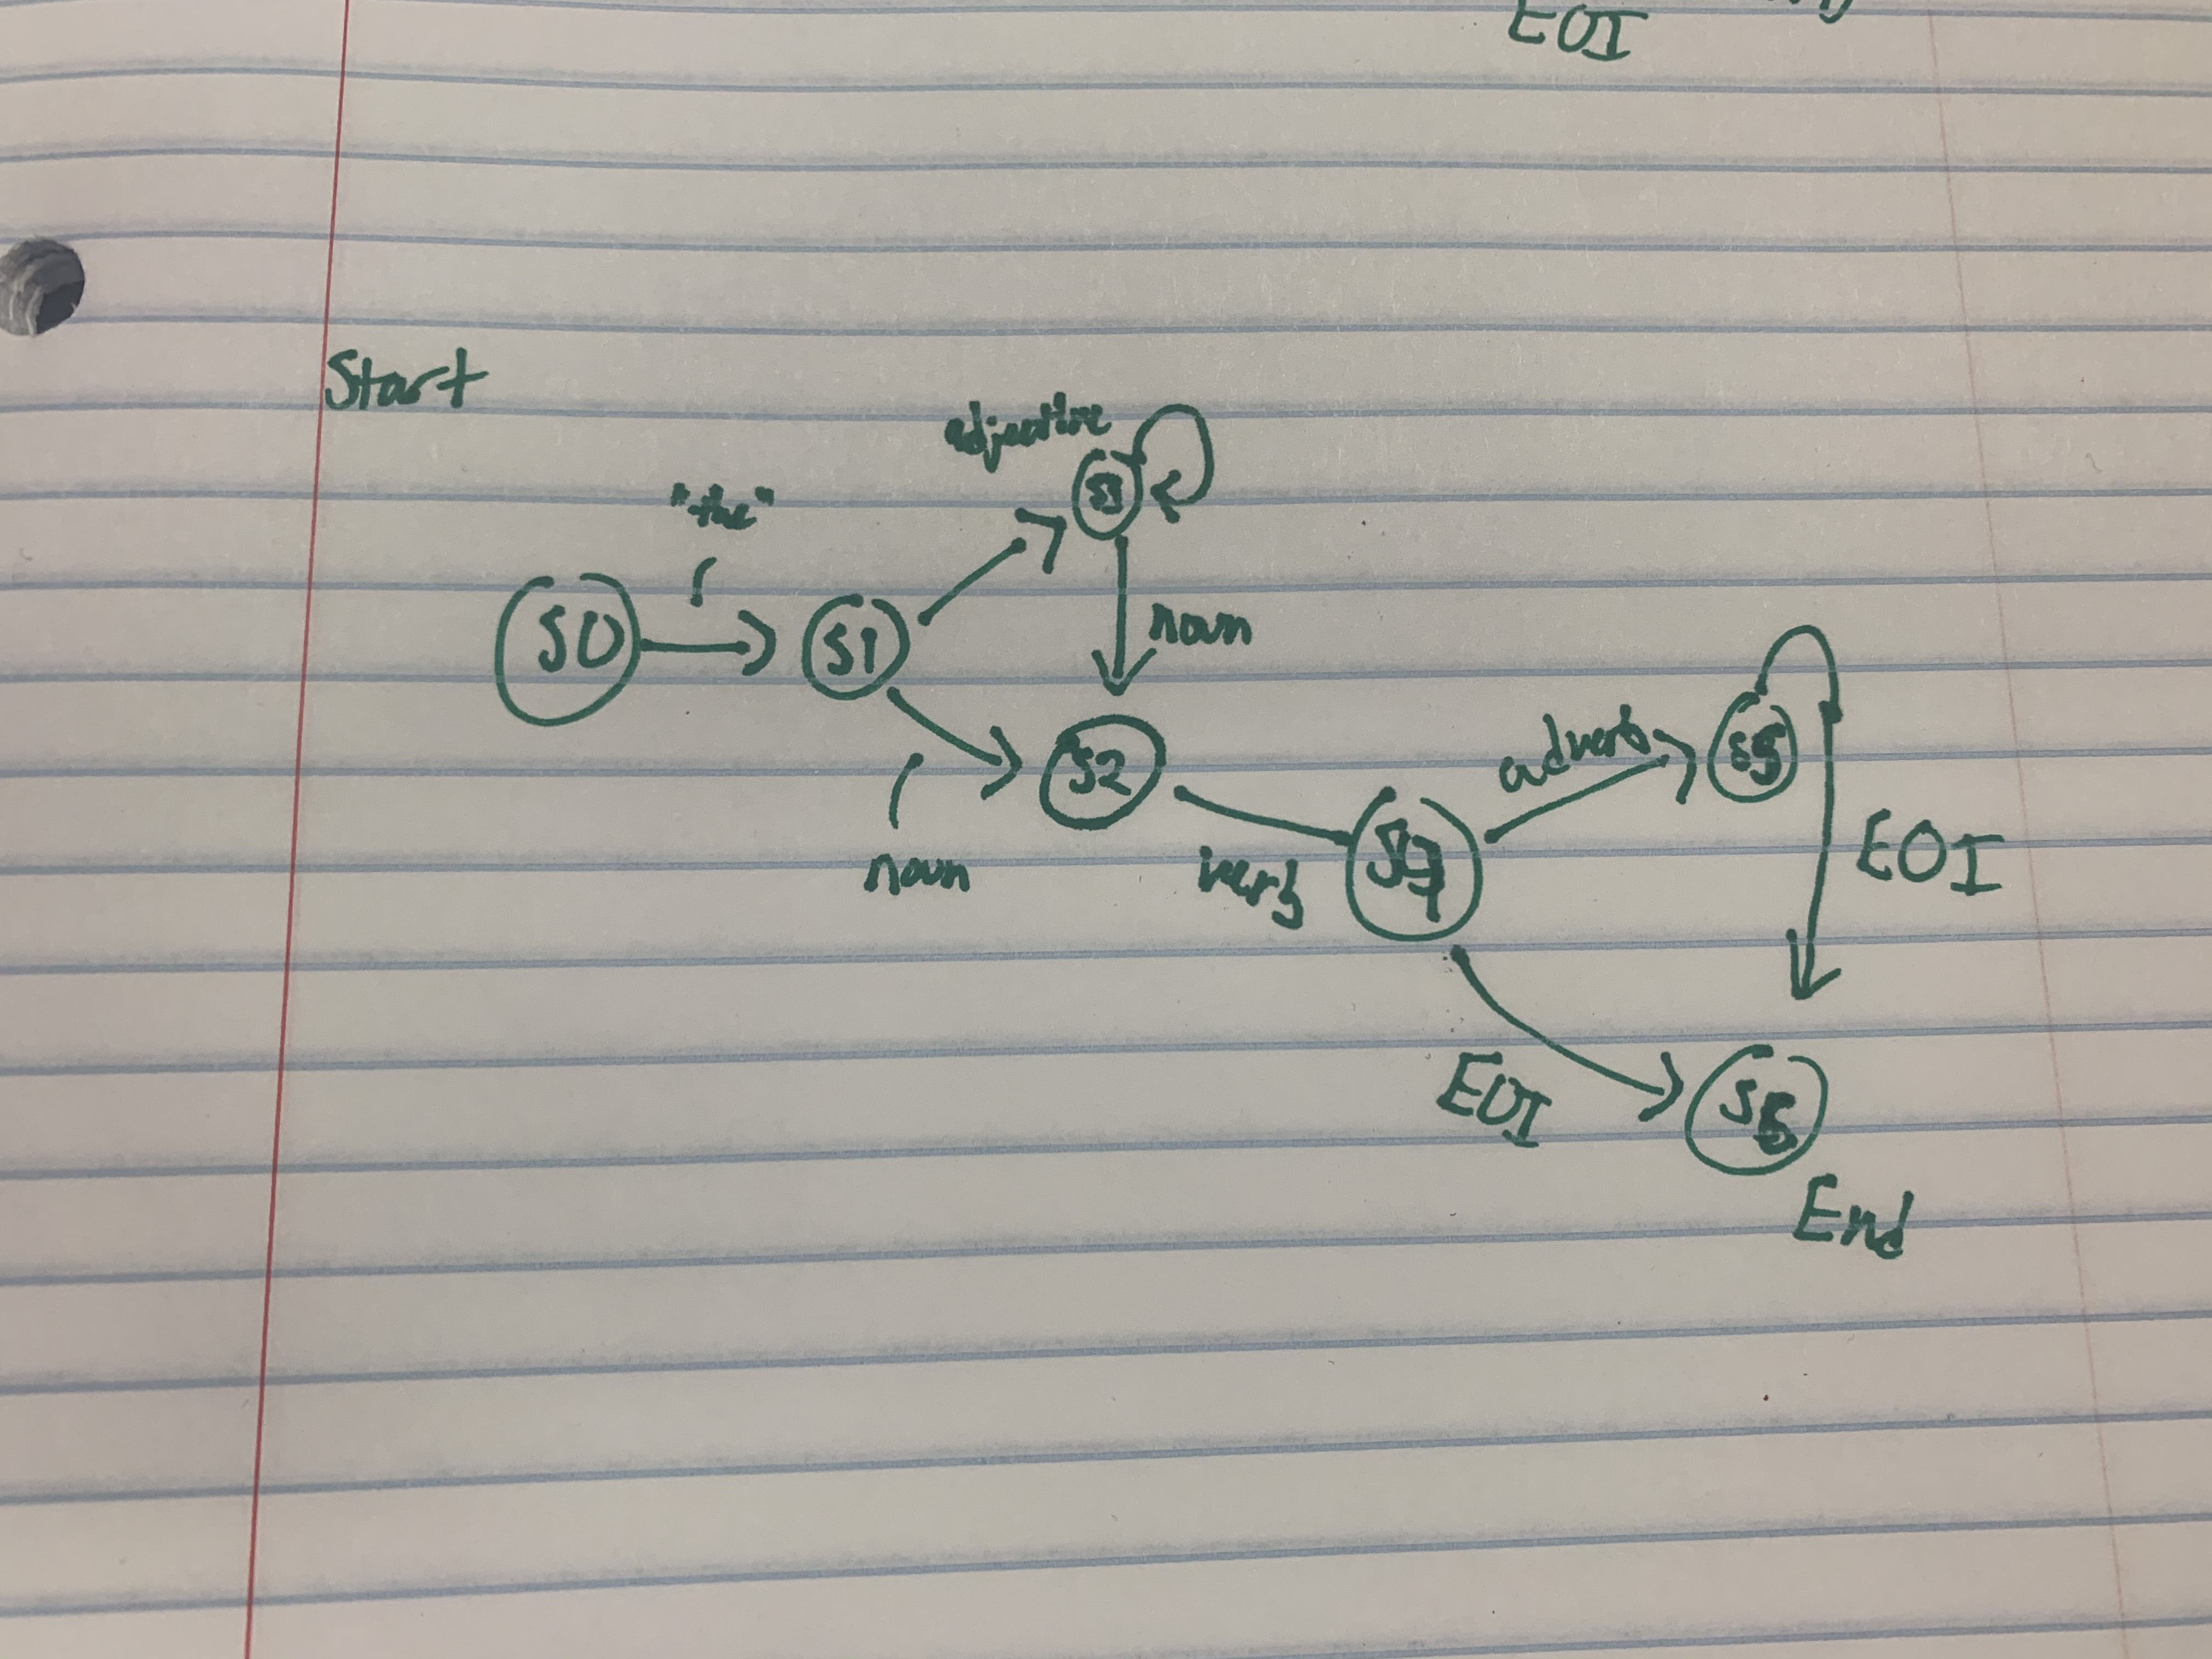 Start
"the"
adjective
S0
S1
S3
noun
noun
S2
verb
S4
adverb
S5
EOI
EOI
S6
End
EOI